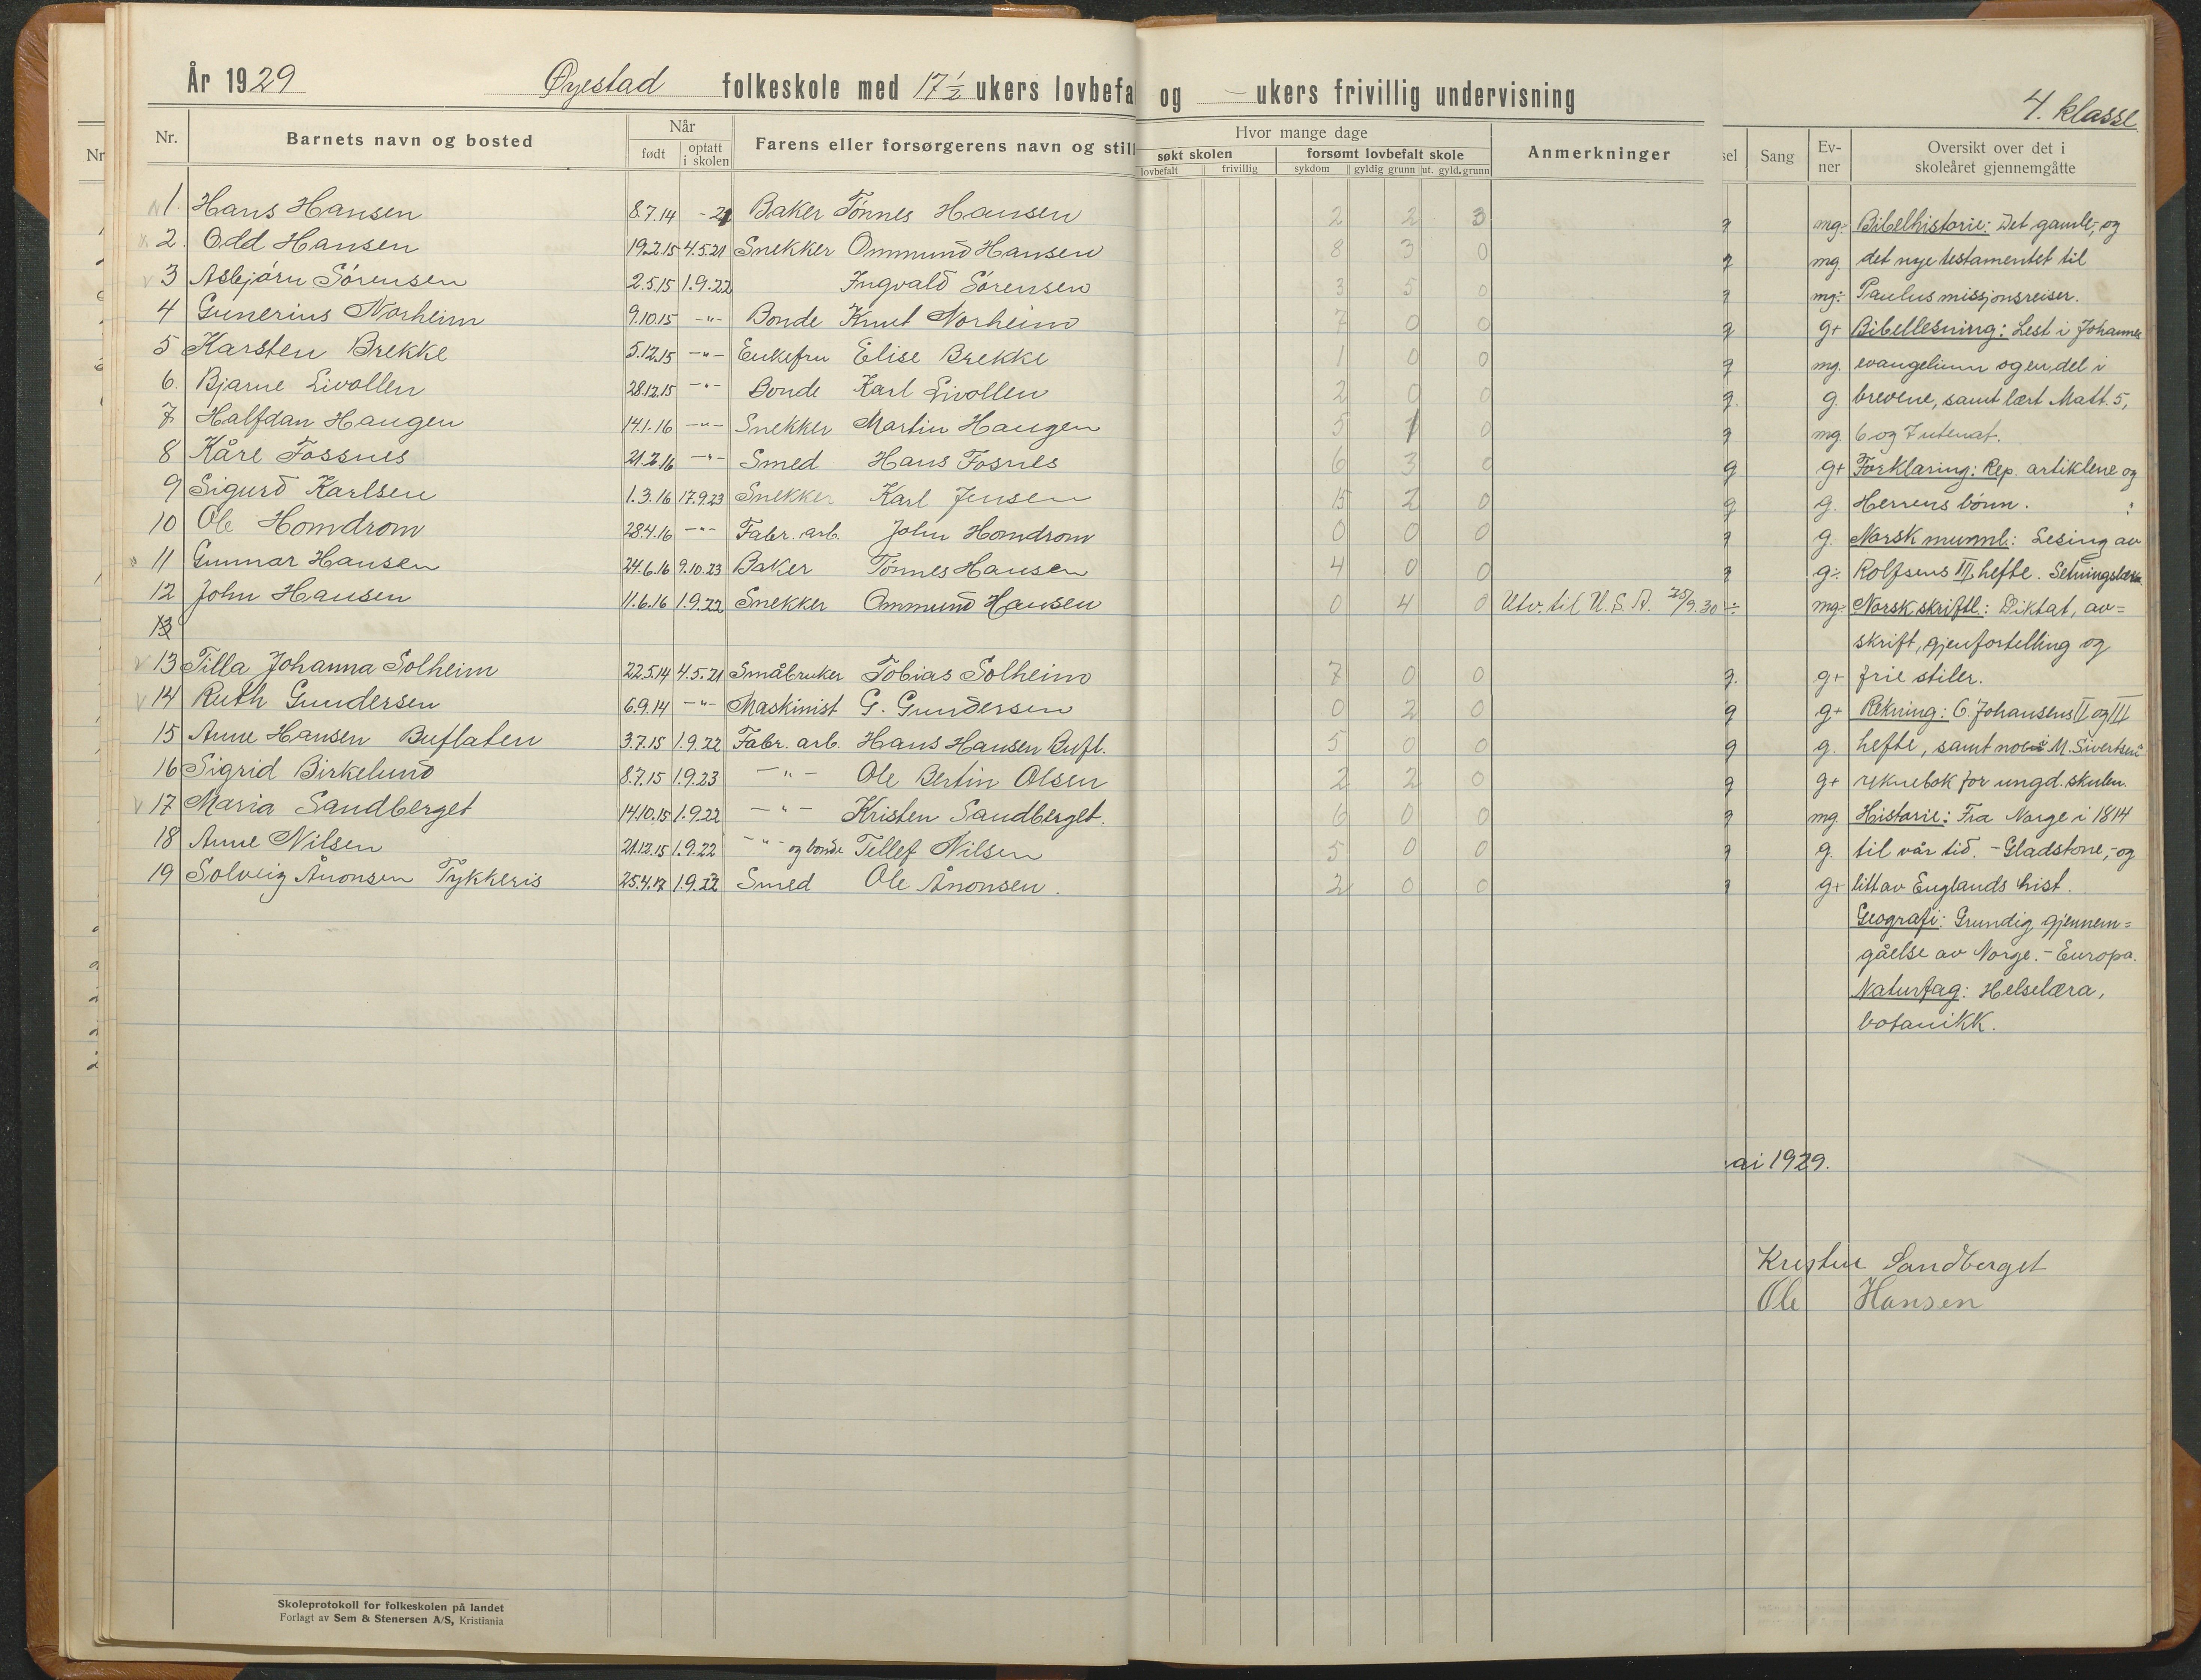 År 1929 Øyestad folkeskole med 17 1/2 ukers lovbefa og - ukers frivillig undervisning
4. klasse
Nr. Barnets navn og bosted Når Farens eller forsørgerens navn og still Hvor mange dage Anmerkninger sel Sang Ev-ner Oversikt over det i skoleåret gjennemgåtte
født optatt i skolen søkt skolen forsømt lovbefalt skole
lovbefalt frivillig sykdom gyldig grunn ut. gyld. grunn
1. Hans Hansen 8.7.14 -21 Baker Tønnes Hansen 2 2 3 g mg÷ Bibelhistorie: Det gamle,- og
2. Odd Hansen 19.2.15 4.5.21 Snekker Ommund Hansen 8 3 0 g mg. det nye testamentet til
3 Asbjørn Sørensen 2.5.15 1.9.22 Ingvald Sørensen 3 5 0 g mg÷ Paulus missjonsreiser.
4 Gunerius Norheim 9.10.15 -"- Bonde Knut Norheim 7 0 0 g g+ Bibellesning: Lest i Johannes
5 Karsten Brekke 5.12.15 -"- Enkefru Elise Brekke 1 0 0 g mg. evangelium og en del i
6. Bjarne Livollen 28.12.15 -"- Bonde Karl Livollen 2 0 0 g. g. brevene, samt lært Matt. 5,
7 Halfdan Haugen 14.1.16 -"- Snekker Martin Haugen 5 1 0 g mg. 6 og 7 utenat.
8 Kåre Fossnes 21.2.16 -"- Smed Hans Fosnes 6 3 0 g g+ Forklaring: Rep. artiklene og
9 Sigurd Karlsen 1.3.16 17.9.23 Snekker Karl Jensen 15 2 0 g g. Herrens bønn.
10 Ole Homdrom 28.4.16 -"- Fabr. arb. John Homdrom 0 0 0 g g. Norsk munnl.: Lesing av
11 Gunnar Hansen 24.6.16 9.10.23 Baker Tønnes Hansen 4 0 0 g g÷ Rolfsens III hefte. Setningslære.
12 John Hansen 11.6.16 1.9.22 Snekker Ommund Hansen 0 4 0 Utv. til U.S.A. 25/9.30 ÷ mg÷ Norsk skriftl.: Diktat, av=
13 skrift, gjenfortelling og
13 Tilla Johanna Solheim 22.5.14 4.5.21 Småbruker Tobias Solheim 7 0 0 g. g+ frie stiler.
14 Ruth Gundersen 6.9.14 -"- Maskinist G. Gundersen 0 2 0 g g+ Rekning: C. Johansens II og III
15 Anne Hansen Buflaten 3.7.15 1.9.22 Fabr. arb. Hans Hansen Bufl. 5 0 0 g g. hefte, samt M. Sivertsens
16 Sigrid Birkelund 8.7.15 1.9.23 -"- Ole Bertin Olsen 2 2 0 g g+ reknebok for ungd. skulen.
17 Maria Sandberget 14.10.15 1.9.22 -"- Kristen Sandberget. 6 0 0 g mg. Historie: Fra Norge i 1814
18 Anne Nilsen 21.12.15 1.9.22 -"- og bonde Tellef Nilsen 5 0 0 g g. til vår tid. - Gladstone,- og
19 Solveig Ånonsen Tykkeris 25.4.17 1.9.22 Smed Ole Ånonsen. 2 0 0 g g+ litt av Englands hist.
Geografi: Grundig gjennem=
gåelse av Norge. - Europa.
Naturfag: Helselæra,
botanikk.
ai 1929.
Kristen Sandberget
Ole Hansen
Skoleprotokoll for folkeskolen på landet
Forlagt av Sem & Stenersen A/S, Kristiania